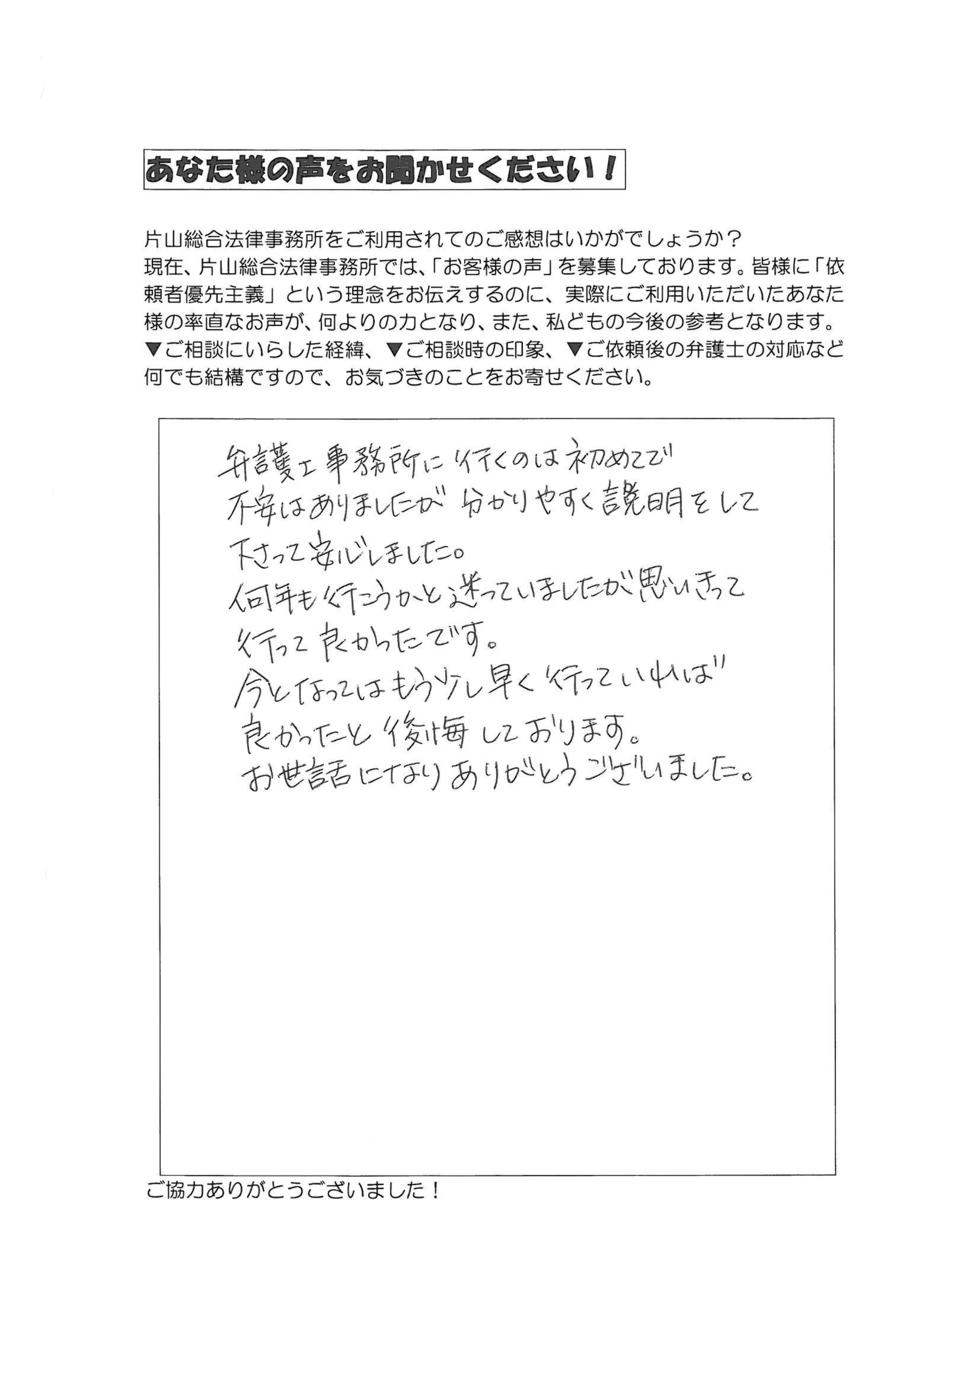 あなた様の声をお聞かせください！
片山総合法律事務所をご利用されてのご感想はいかがでしょうか？
現在、片山総合法律事務所では、「お客様の声」を募集しております。皆様に「依
頼者優先主義」という理念をお伝えするのに、実際にご利用いただいたあなた
様の率直なお声が、何よりの力となり、また、私どもの今後の参考となります。
▼ご相談にいらした経緯、▼ご相談時の印象、▼ご依頼後の弁護士の対応など
何でも結構ですので、お気づきのことをお寄せください。
弁護士事務所に行くのは初めてで
不安はありましたが分かりやすく説明をして
下さって安心しました。
何年も行こうかと迷っていましたが思いきって
行って良かったです。
今となってはもう少し早く行っていれば
良かったと後悔しております。
お世話になりありがとうございました。
ご協力ありがとうございました！